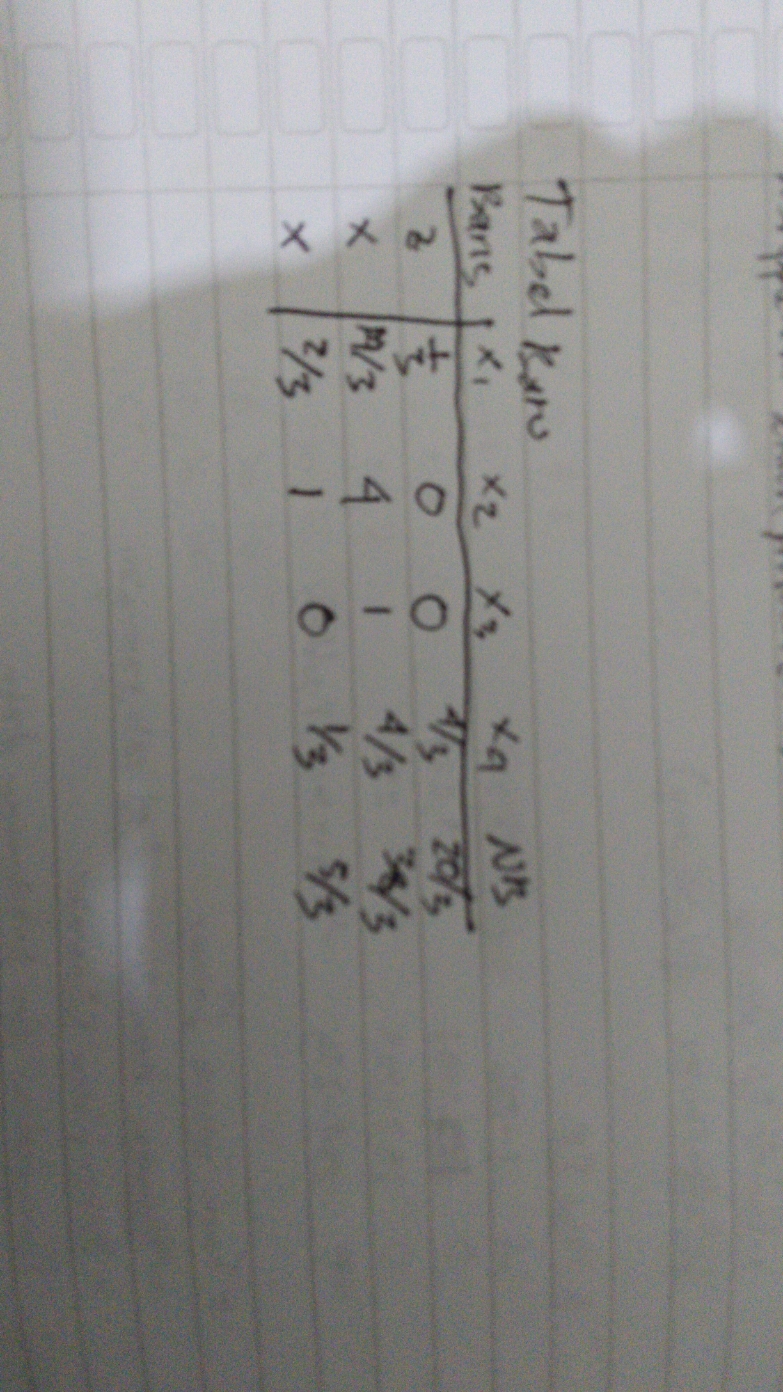 Tabel Baru
Baris x1 x2 x3 x4 NK
z 1/3 0 0 4/3 20/3
x /3 4 1 4/3 /3
x 2/3 1 0 1/3 5/3